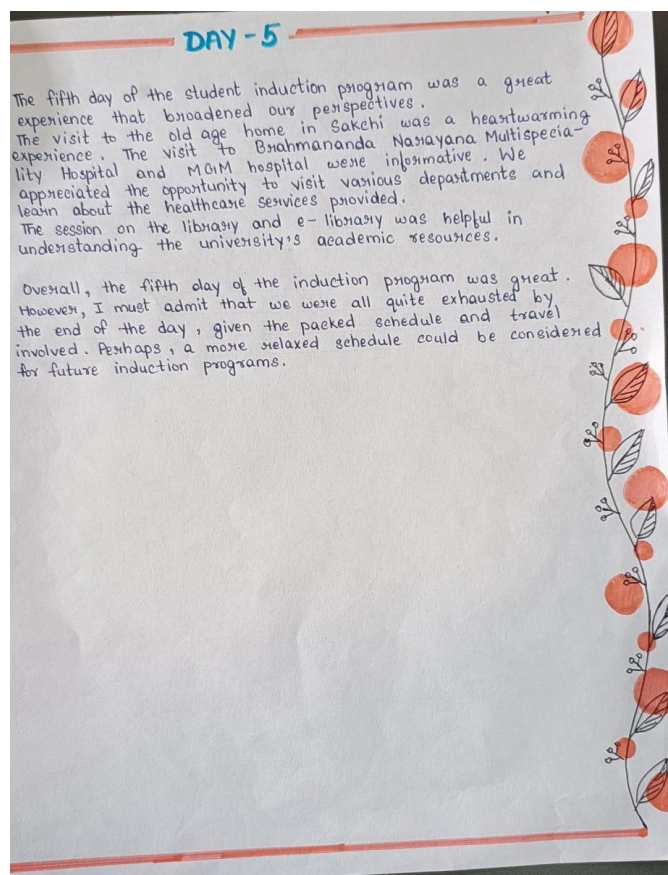 DAY - 5
The fifth day of the student induction program was a great
experience that broadened our perspectives.
The visit to the old age home in Sakchi was a heartwarming
experience. The visit to Brahmananda Narayana Multispecia-
lity Hospital and MGM hospital were informative. We
appreciated the opportunity to visit various departments and
learn about the healthcare services provided.
The session on the library and e-library was helpful in
understanding the university's academic resources.
Overall, the fifth day of the induction program was great.
However, I must admit that we were all quite exhausted by
the end of the day, given the packed schedule and travel
involved. Perhaps, a more relaxed schedule could be considered
for future induction programs.